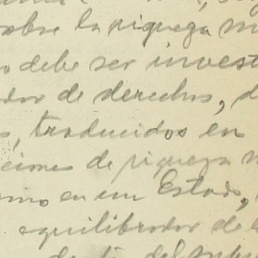 sobre la riqueza
o debe ser invest
dor de derechos, d
s, traducidos en
ciones de riqueza
omo en un Estado,
equilibrador de